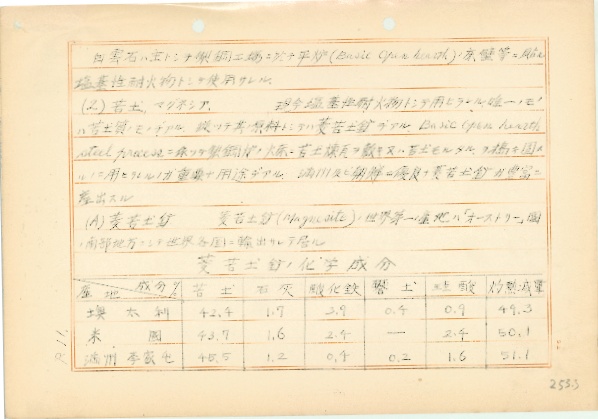 白雲石ハ主トシテ製鋼工場ニ於テ平炉(Basic Open hearth)ノ床壁等ニ
塩基性耐火物トシテ使用サレル。
(2) 苦土、マグネシヤ. 現今塩基性耐火物トシテ用ヒラレル唯一ノモノ
ハ苦土質ノモノデアル. 従ツテ其ノ原料トシテハ菱苦土鉱デアル. Basic Open hearth
steel process ニ依ツテ製鋼炉ノ火床ニ苦土煉瓦ヲ敷キ又ハ苦土モルタル
ルニ用ヒラレルノガ重要ナ用途デアル. 満州及ビ朝鮮ニ優良ナ菱苦土鉱ガ豊富ニ
産出スル
(A) 菱苦土鉱 菱苦土鉱(Magnesite)ノ世界第一ノ産地ハ「オーストリー」国
ノ南部地方ニシテ世界各国ニ輸出サレテ居ル
菱苦土鉱ノ化学成分
産地 成分% 苦土 石灰 酸化鉄 礬土 珪酸 灼熱減量
墺太利 42.4 1.7 3.9 0.4 0.9 49.3
米国 43.7 1.6 2.4 — 2.4 50.1
満州 45.5 1.2 0.4 0.2 1.6 51.1
P.11.
2533